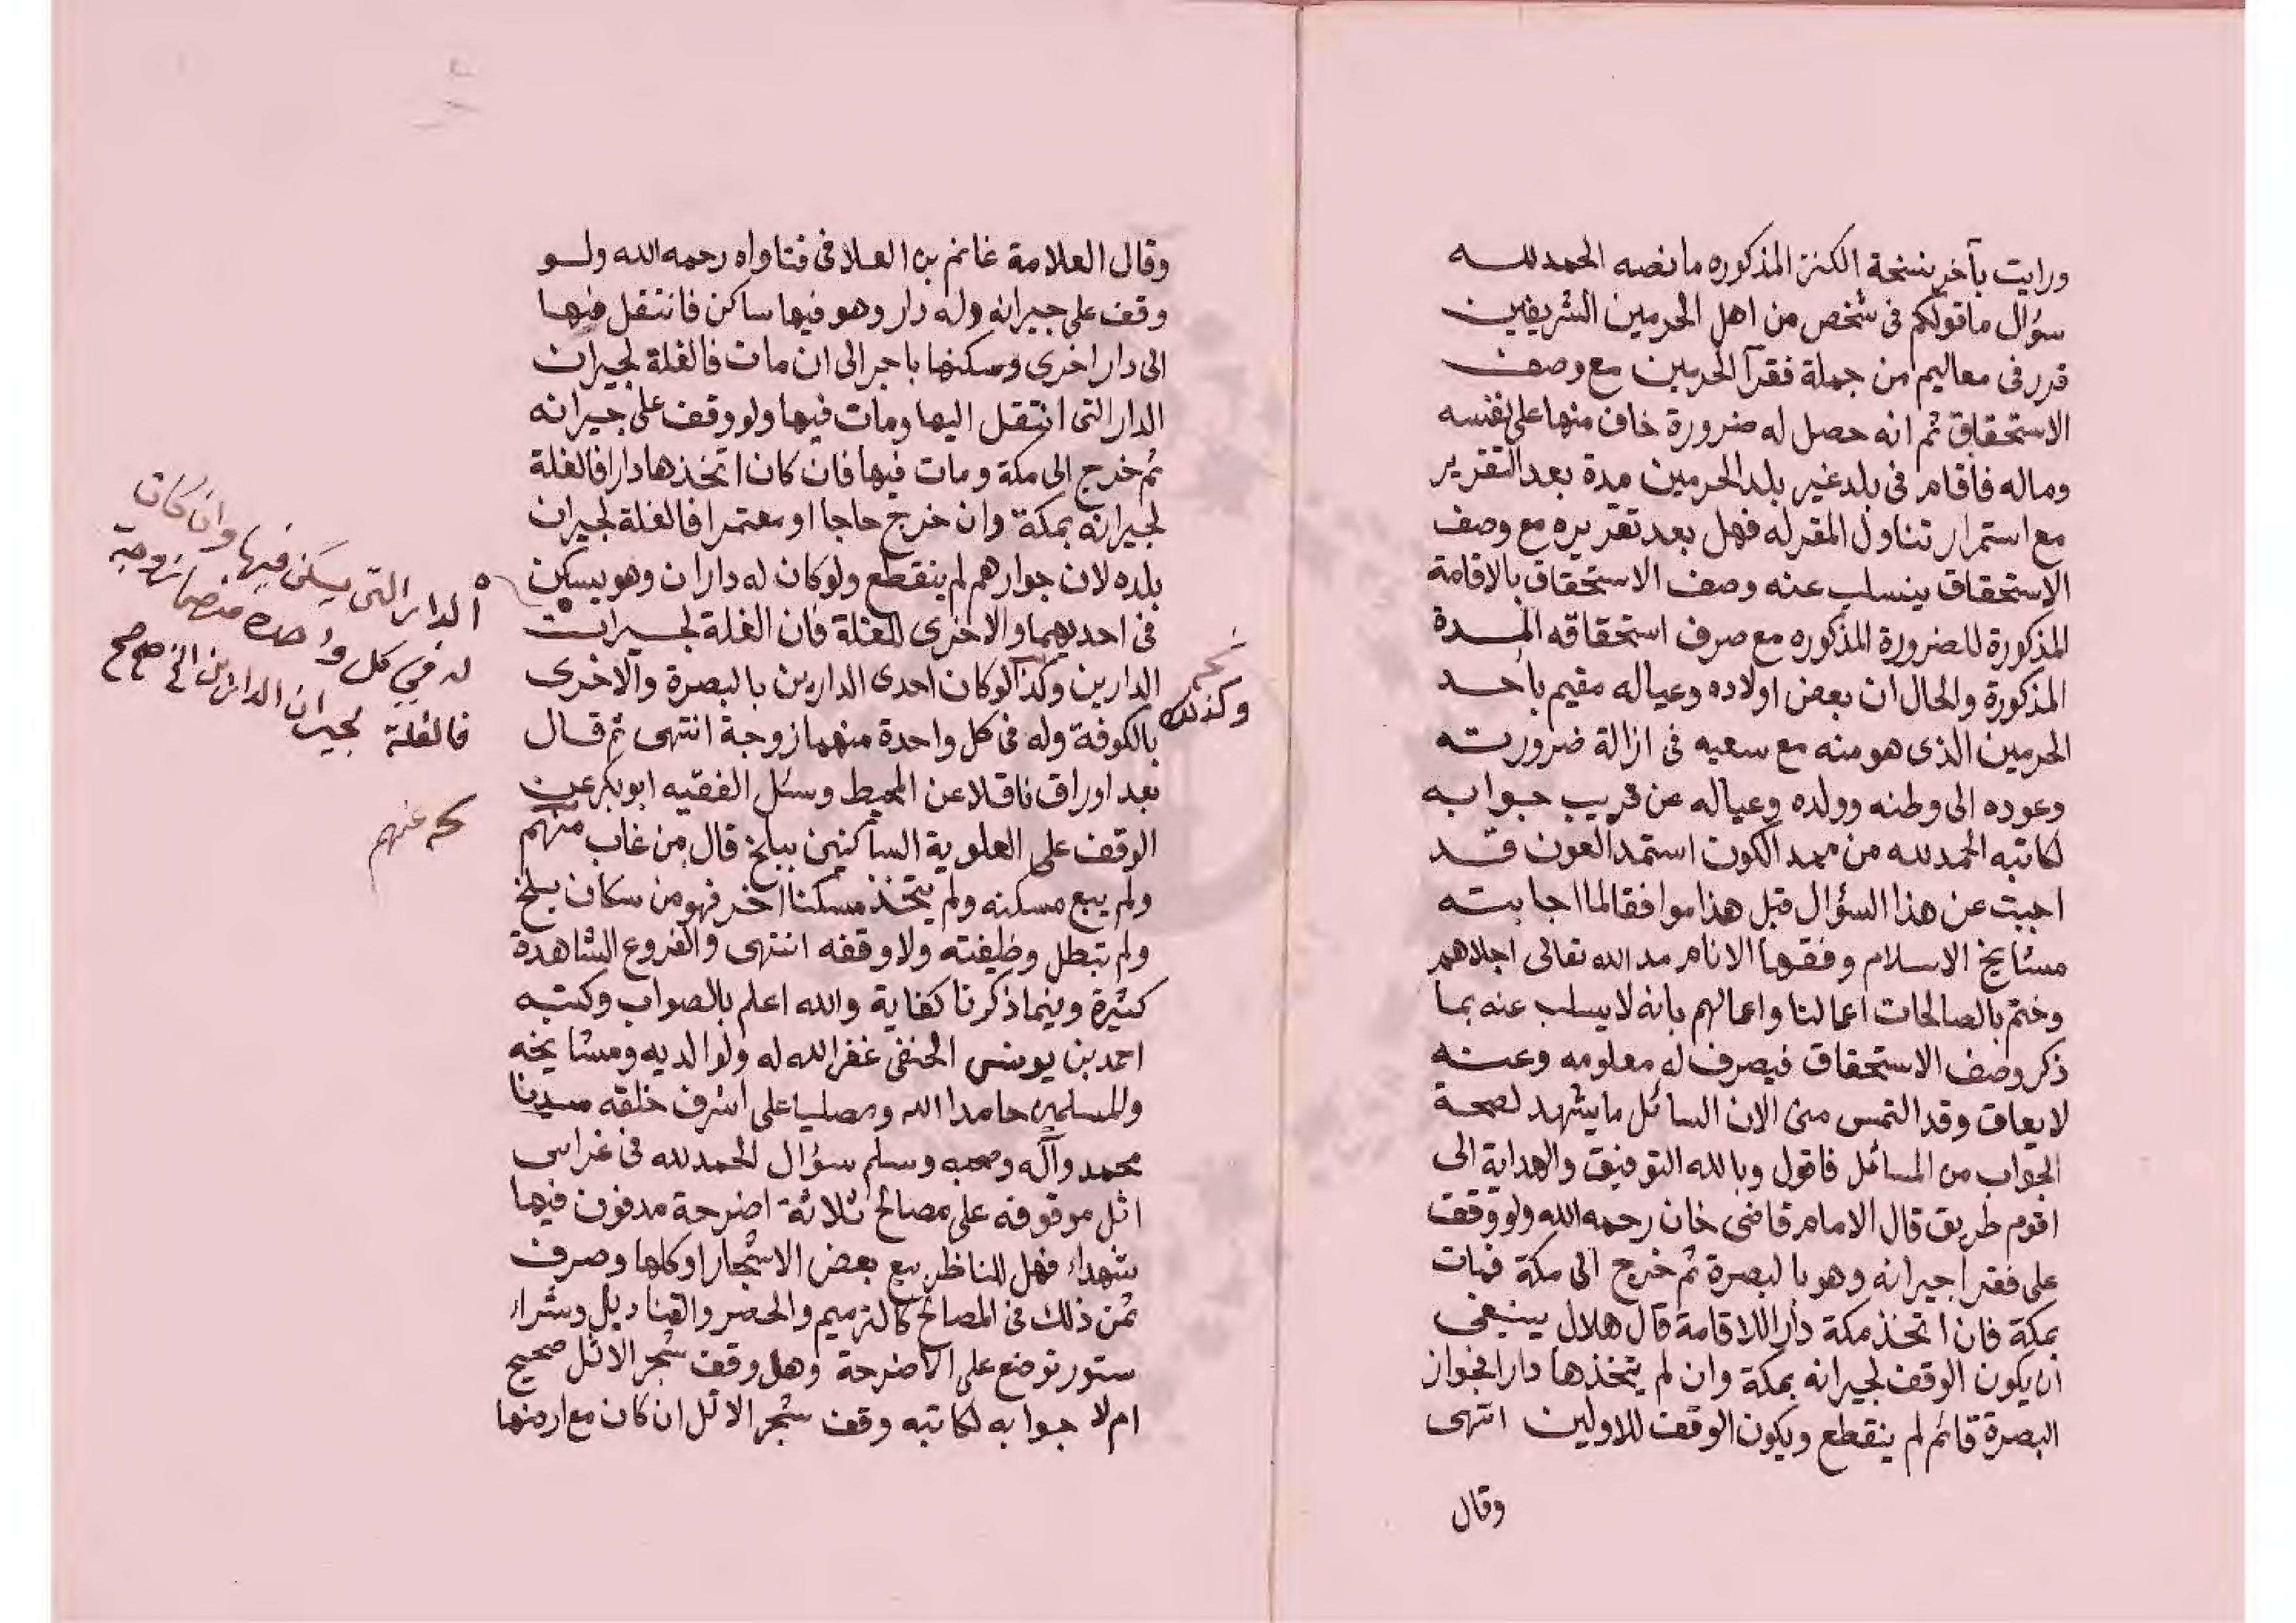 ورايت بآخر نسخة الكنز المذكوره ما نصه الحمد لله
سؤال ما قولكم فى شخص من اهل الحرمين الشريفين
قرر فى معاليم من جملة فقرآ الحرمين مع وصف
الاستحقاق ثم انه حصل له ضرورة خاف منها على نفسه
وماله فاقام فى بلد غير بلد الحرمين مدة بعد التقرير
مع استمرار تناول المقرله فهل بعد تقريره مع وصف
الاستحقاق ينسلب عنه وصف الاستحقاق بالاقامة
المذكورة للضرورة المذكوره مع صرف استحقاقه المدة
المذكورة والحال ان بعض اولاده وعياله مقيم باحد
الحرمين الذى هو منه مع سعيه فى ازالة ضرورته
وعوده الى وطنه وولده وعياله عن قريب جوابه
لكاتبه الحمد لله من ممد الكون استمد العون قد
اجبت عن هذا السؤال قبل هذا موافقا لما اجابته
مشايخ الاسلام وفقها الانام مد الله تعالى اجلاهم
وختم بالصالحات اعمالنا واعمالهم بانه لا يسلب عنه بما
ذكر وصف الاستحقاق فيصرف له معلومه وعنه
لا يعاق وقد التمس منى الان السائل ما يشهد لصحة
الجواب من المسائل فاقول وبالله التوفيق والهداية الى
اقوم طريق قال الامام قاضى خان رحمه الله ولو وقف
على فقرا جيرانه وهو بالبصرة ثم خرج الى مكة فمات
بمكة فان اتخذ مكة دارا للاقامة قال هلال ينبغى
ان يكون الوقف لجيرانه بمكة وان لم يتخذها دارا فجوار
البصرة قائم لم ينقطع ويكون الوقف للاولين انتهى
وقال
وقال العلامة غانم بن العلا فى فتاواه رحمه الله ولو
وقف على جيرانه وله دار وهو فيها ساكن فانتقل فيها
الى دار اخرى وسكنها باجر الى ان مات فالغلة لجيران
الدار التى انتقل اليها ومات فيها ولو وقف على جيرانه
ثم خرج الى مكة ومات فيها فان كان اتخذها دارا فالغلة
لجيرانه بمكة وان خرج حاجا او معتمرا فالغلة لجيران
بلده لان جوارهم لم ينقطع ولو كان له داران وهو يسكن
فى احديهما والاخرى للغلة فان الغلة لجيران
الدارين وكذا لو كان احدى الدارين بالبصرة والاخرى
بالكوفة وله فى كل واحدة منهما زوجة انتهى ثم قال
بعد اوراق ناقلا عن المحيط وسئل الفقيه ابو بكر عن
الوقف على العلوية الساكنين ببلخ قال من غاب منهم
ولم يبع مسكنه ولم يتخذ مسكنا اخر فهو من سكان بلخ
ولم تبطل وظيفته ولا وقفه انتهى والفروع الشاهدة
كثيرة وفيما ذكرنا كفاية والله اعلم بالصواب وكتبه
احمد بن يونس الحنفى غفر الله له ولوالديه ومشايخه
وللمسلمين حامدا الله ومصليا على اشرف خلقه سيدنا
محمد وآله وصحبه وسلم سؤال الحمد لله فى غراس
اثل موقوفه على مصالح ثلاثة اضرحة مدفون فيها
شهداء فهل للناظر بيع بعض الاشجار او كلها وصرف
ثمن ذلك فى المصالح كالترميم والحضر والقناديل وشراء
ستور توضع على الاضرحة وهل وقف شجر الاثل صحيح
ام لا جوابه لكاتبه وقف شجر الاثل ان كان مع ارضها
وكذلك
الدار التى يسكن فيها وان كان
له في كل واحدة منهما زوجة
فالغلة لجيران الدارين الخ صح صح